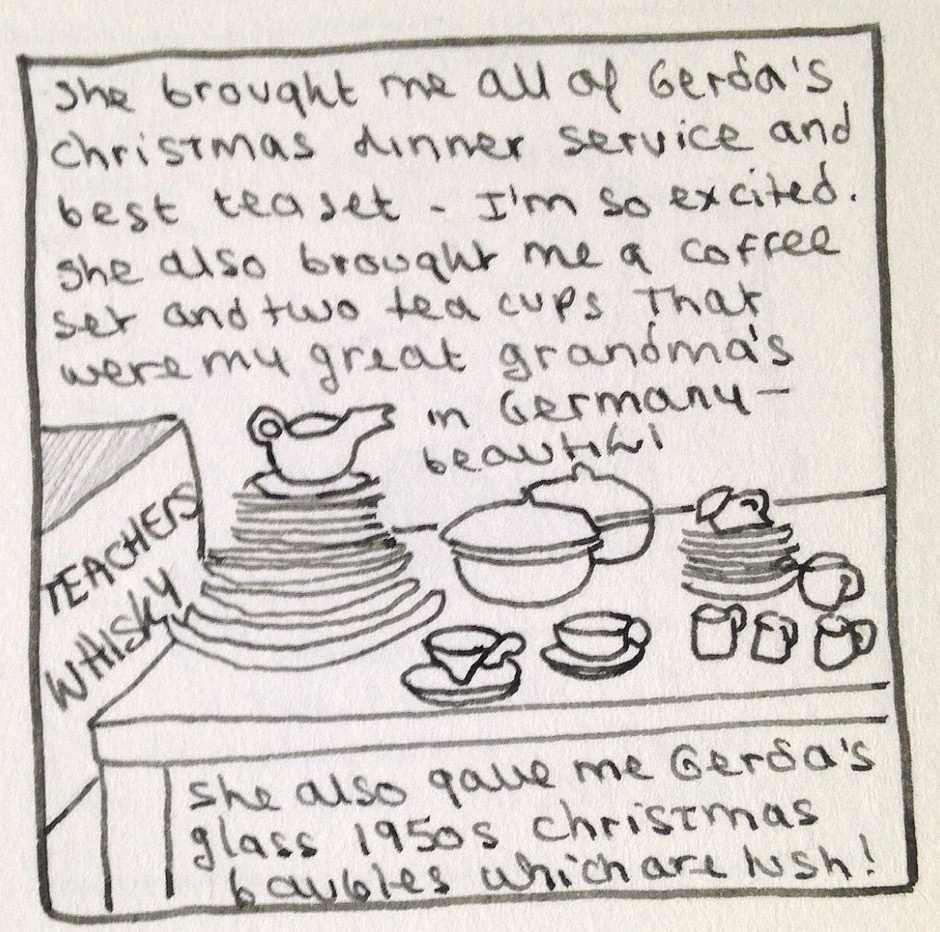 She brought me all of Gerda's
christmas dinner service and
best teaset - I'm so excited.
She also brought me a coffee
set and two tea cups that
were my great grandma's
in Germany —
beautiful
TEACHERS
WHISKY
She also gave me Gerda's
glass 1950s christmas
baubles which are lush!